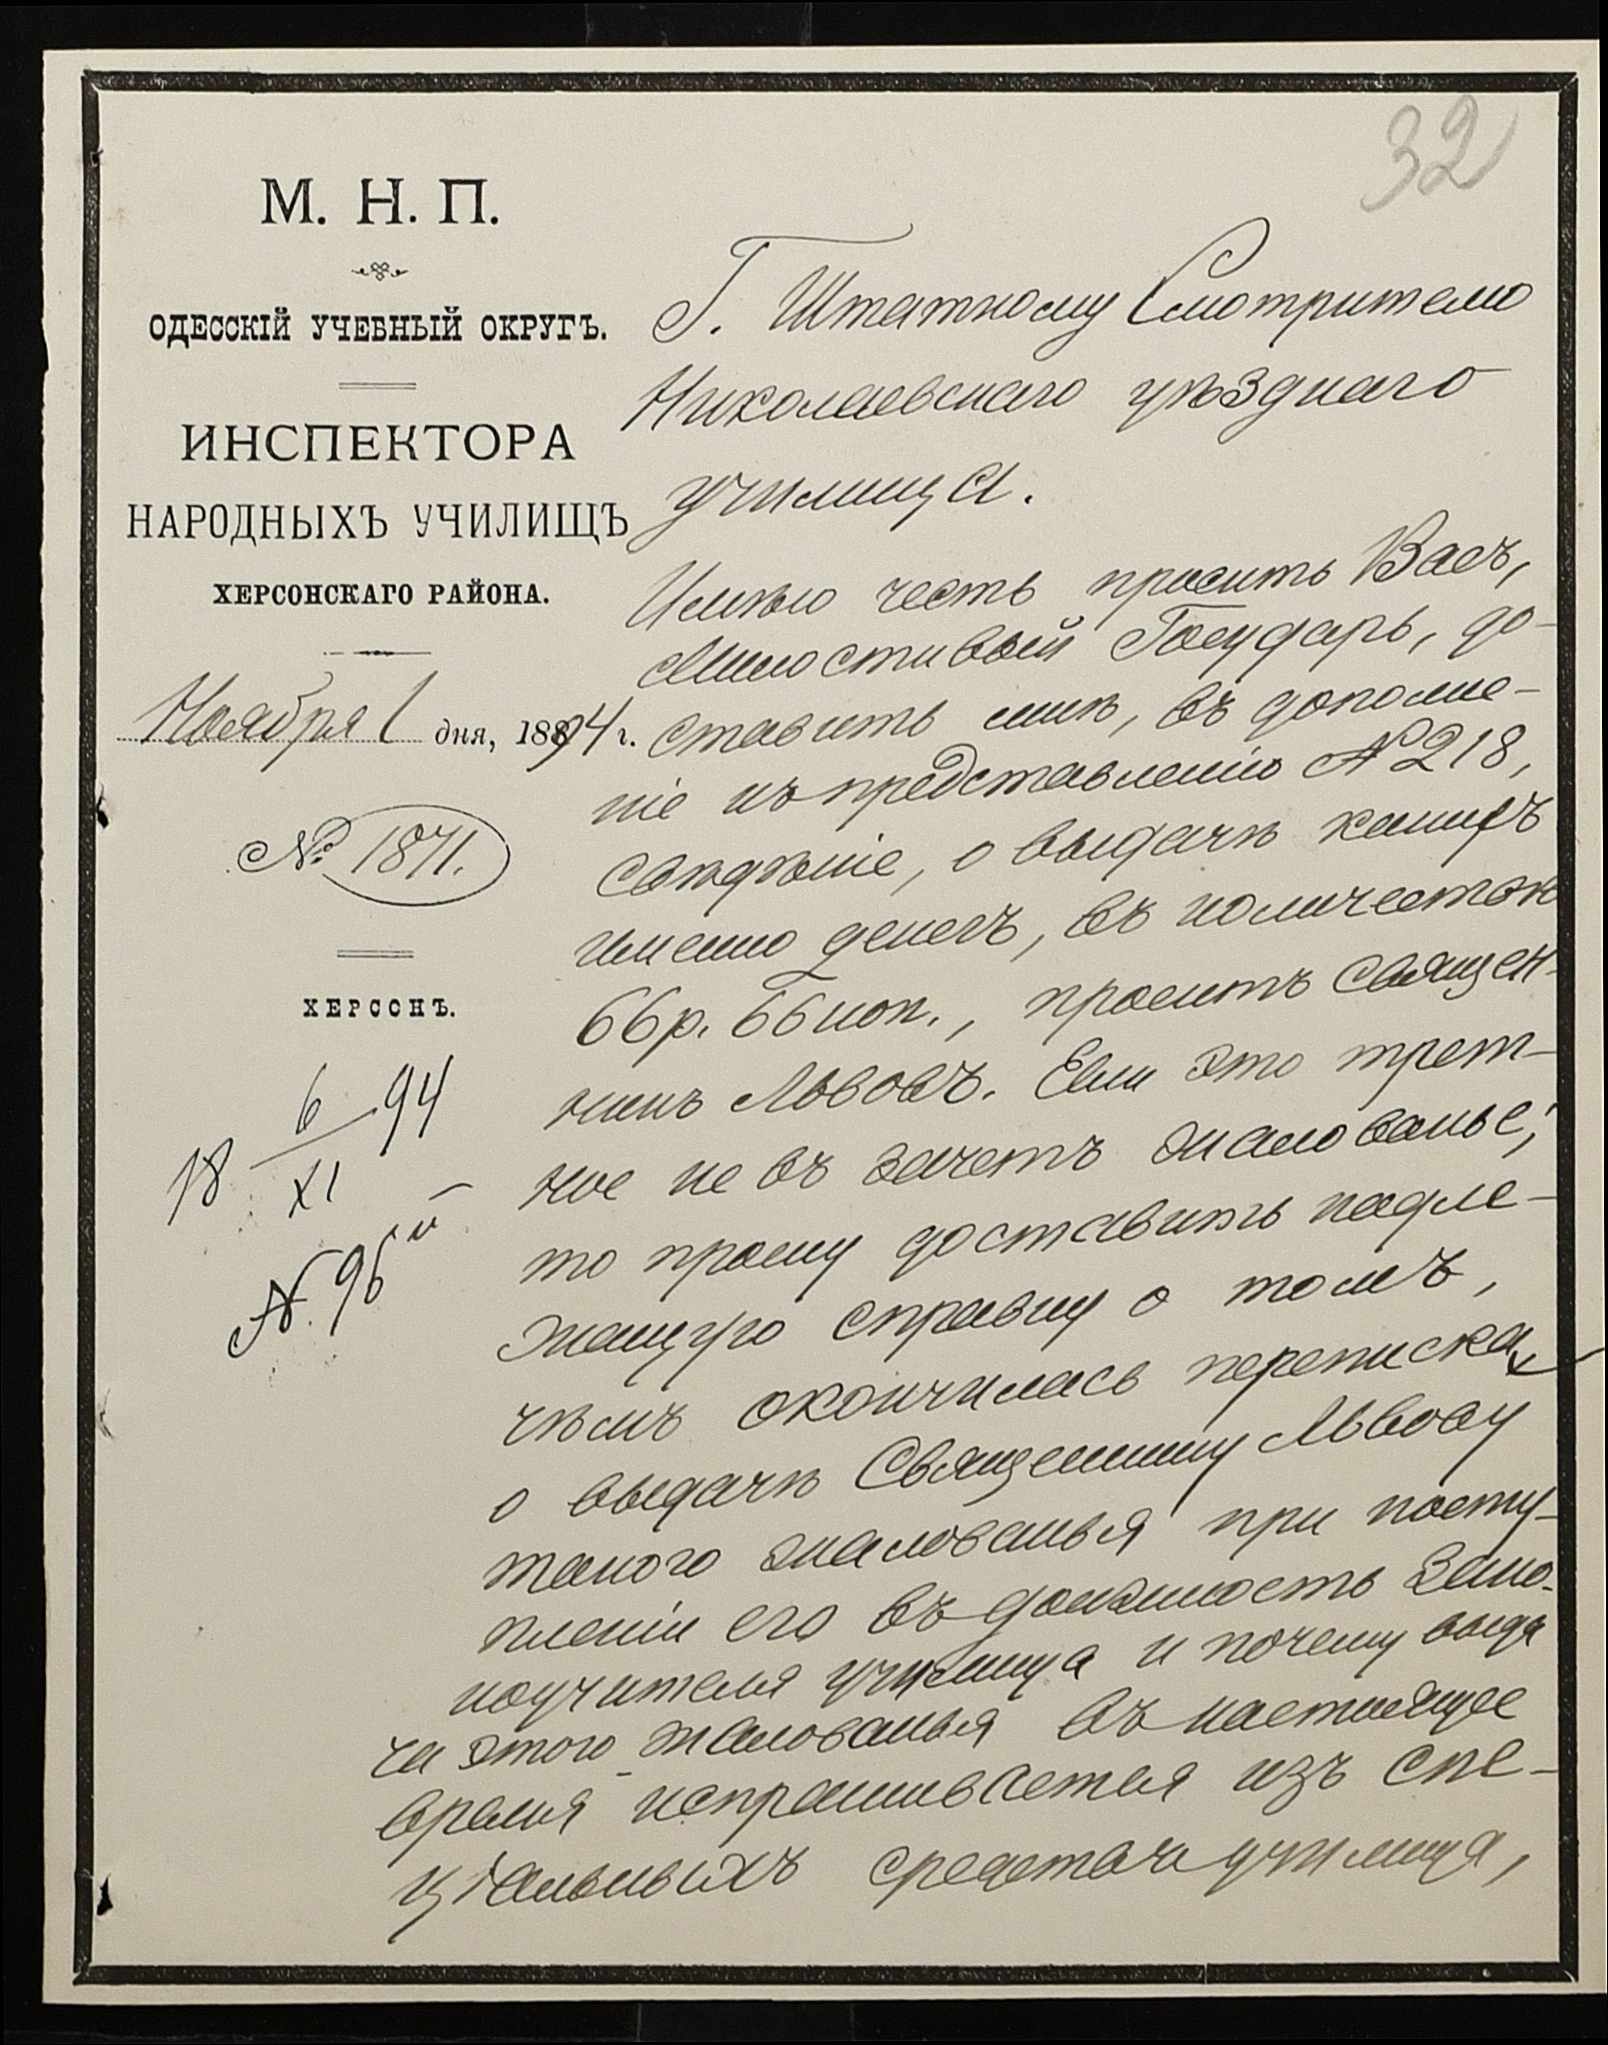 32
М. Н. П.
ОДЕССКІЙ УЧЕБНЫЙ ОКРУГЪ.
ИНСПЕКТОРА
НАРОДНЫХЪ УЧИЛИЩЪ
ХЕРСОНСКАГО РАЙОНА.
Ноября 1 дня, 1894 г.
№ 1871.
ХЕРСОНЪ.
18 6/XI 94
№. 96
Г. Штатному Смотрителю
Николаевскаго уѣзднаго
училища.
Имѣю честь просить Васъ,
Милостивый Государь, до-
ставить мнѣ, въ дополне-
ніе къ представленію № 218,
свѣдѣніе, о выдачѣ какихъ
именно денегъ, въ количествѣ
66 р. 66 коп., проситъ Священ-
никъ Львовъ. Если это трет-
ное не въ зачетъ жалованье,
то прошу доставить надле-
жащую справку о томъ,
чѣмъ окончилась переписка
о выдачѣ Священнику Львову
такого жалованья при посту-
пленіи его въ должность Зако-
ноучителя училища и почему выда
ча этого жалованья въ настоящее
время испрашивается изъ спе-
ціальныхъ средствъ училища,